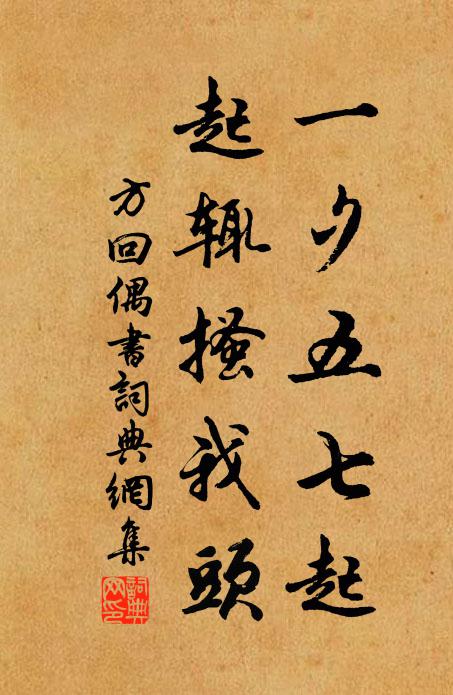 一夕五七起
起辄搔我頭
方回偶書詞典網集
詞典網印